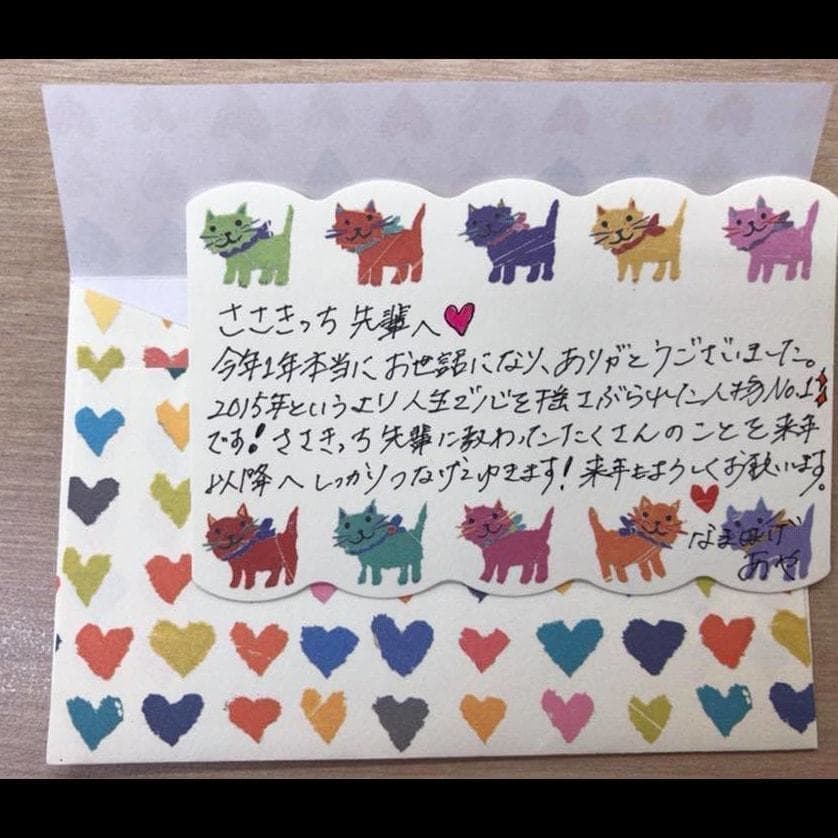 ささきっち先輩へ
今年1年本当にお世話になり、ありがとうございました。
2015年というより人生で心を揺さぶられた人物No.1
です!ささきっち先輩に教わったたくさんのことを来年
以降へしっかりつなげてゆきます!来年もよろしくお願いします。
なまはげ
あや